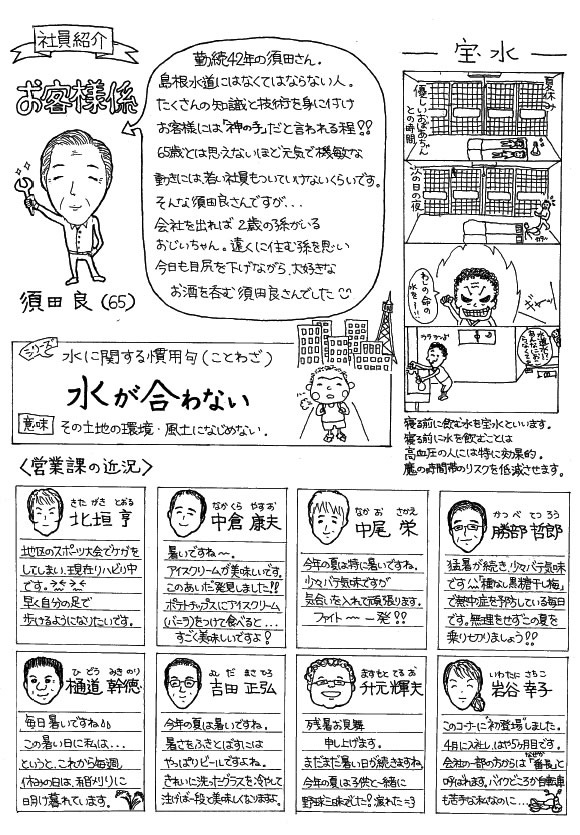 社員紹介
お客様係
須田 良 (65)
勤続42年の須田さん。
島根水道にはなくてはならない人。
たくさんの知識と技術を身に付け
お客様には「神の手」だと言われる程!!
65歳とは思えないほど元気で機敏な
動きには、若い社員もついていけないくらいです。
そんな須田良さんですが...
会社を出れば 2歳の孫がいる
おじいちゃん。遠くに住む孫を思い
今日も目尻を下げながら、大好きな
お酒を呑む須田良さんでした
宝水
夏休み
優しいおばあちゃん
との時間
次の日の夜
わしの命の
水をー!!
フラフラ
寝る前に飲む水を宝水といいます。
寝る前に水を飲むことは
高血圧の人には特に効果的。
魔の時間帯のリスクを低減させます。
シリーズ
水に関する慣用句(ことわざ)
水が合わない
意味 その土地の環境・風土になじめない.
〈営業課の近況〉
きたがき とおる
北垣 亨
地区のスポーツ大会でケガを
してしまい、現在リハビリ中
です。
早く自分の足で
歩けるようになりたいです。
なかくら やすお
中倉 康夫
暑いですね〜。
アイスクリームが美味しいです。
このあいだ発見しました!!
ポテトチップスにアイスクリーム
(バニラ)をつけて食べると…
すごく美味しいですよ!
なかお さかえ
中尾 栄
今年の夏は特に暑いですね。
少々バテ気味ですが
気合いを入れて頑張ります。
ファイト〜一発!!
かつべ てつろう
勝部 哲郎
猛暑が続き、少々バテ気味
です^^;「種なし黒糖干し梅」
で熱中症を予防している毎日
です。無理をせずこの夏を
乗り切りましょう!!
ひどう みきのり
樋道 幹徳
毎日暑いですね
この暑い日に私は...
というと、これから毎週、
休みの日は、稲刈りに
明け暮れています。
よしだ まさひろ
吉田 正弘
今年の夏は暑いですね。
暑さをふきとばすには
やっぱりビールですよね。
きれいに洗ったグラスを冷やして
注げば一段と美味しくなりますよ。
ますもと てるお
升元 輝夫
残暑お見舞
申し上げます。
まだまだ暑い日が続きますね。
今年の夏は子供と一緒に
野球三昧でした!疲れた=3
いわたに さちこ
岩谷 幸子
このコーナーに"初登場"しました。
4月に入社し、はや5ヶ月目です。
会社の一部の方からは「番長」と
なぜか
呼ばれます。バイクどころか自転車
も苦手な私なのに...